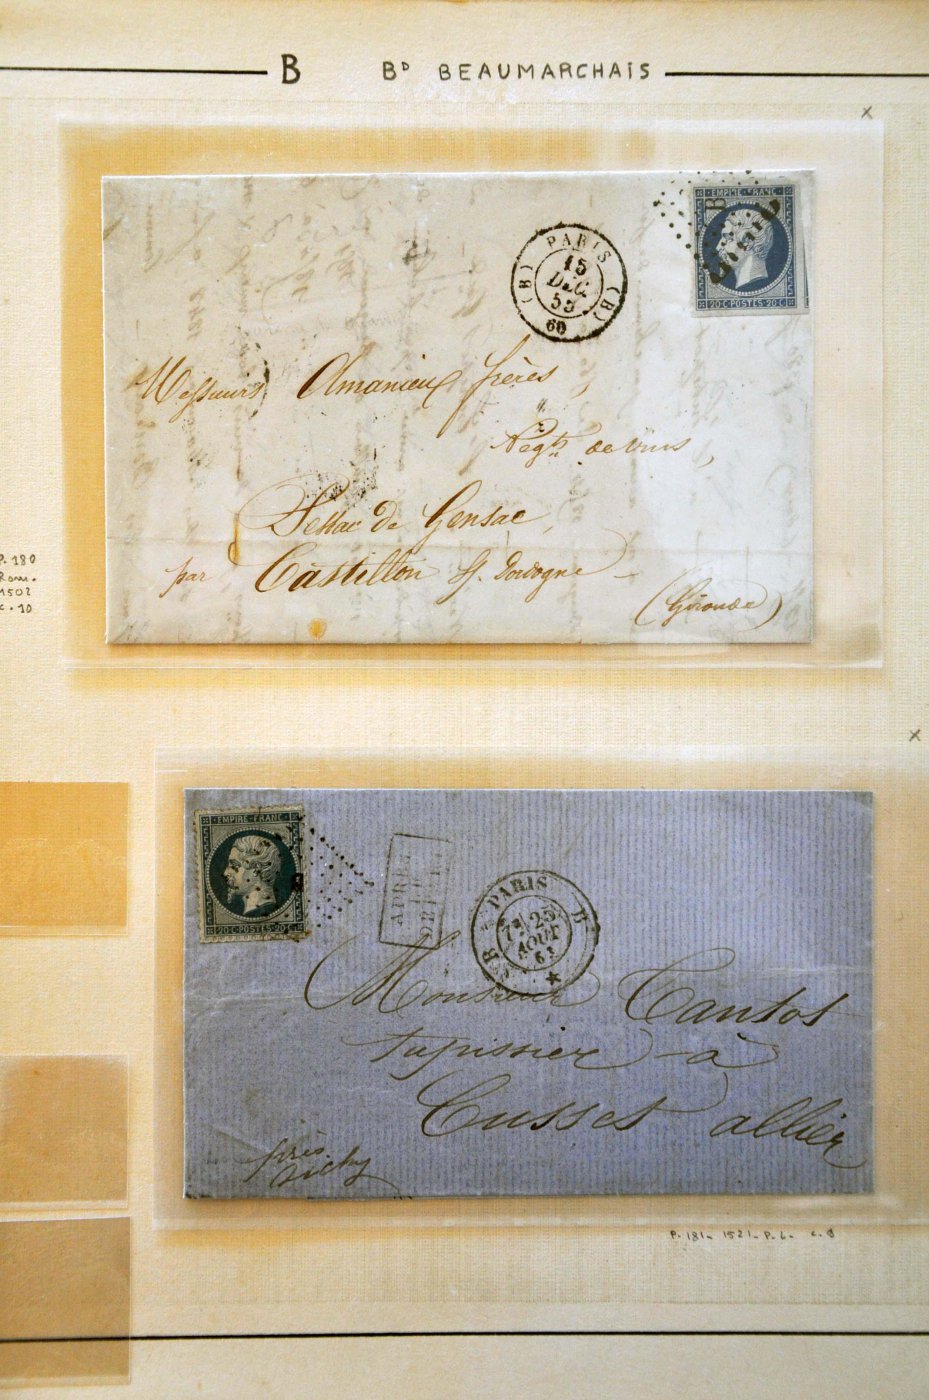 B Bᴰ BEAUMARCHAIS
x
EMPIRE FRANC
B
20 C·POSTES·20 C
PARIS
(B) (B)
15
DÉC.
53
60
Messieurs Amanieux frères,
Négts. de vins,
de Gensac
par Castillon s/. Dordogne
(Gironde)
P. 180
Rom.
1502
c. 10
x
EMPIRE·FRANC
B
20 C·POSTES·20 C
APRÈS
LE
DÉPART
PARIS
B
7E 25
AOUT
63
Monsieur Cantot
tapissier à
Cusset allier
près
Vichy
P. 181- 1521- P. 6- c. 8